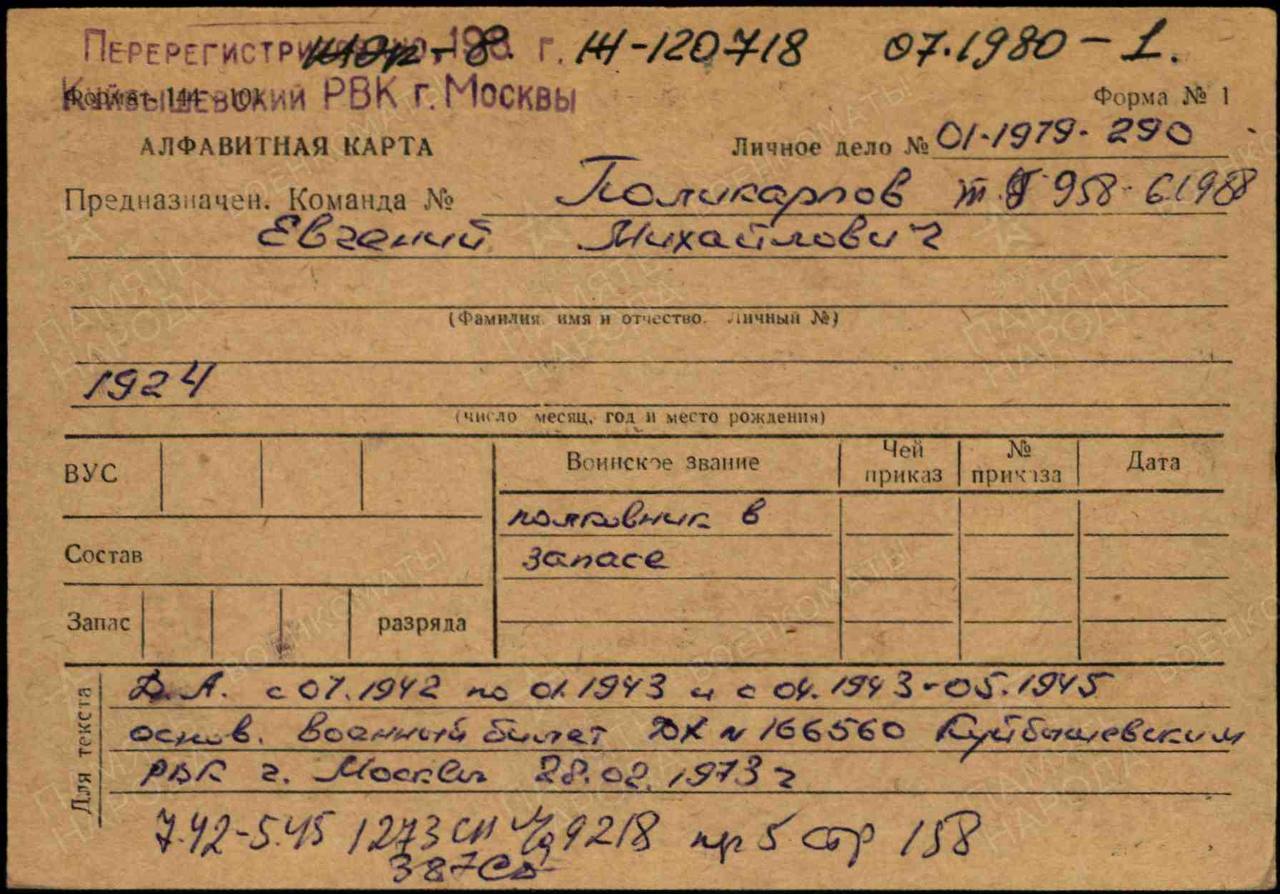 Перерегистрировано 198 г. Ж-120718 07.1980-1.
Куйбышевский РВК г. Москвы Форма № 1
АЛФАВИТНАЯ КАРТА Личное дело № 01-1979-290
Предназначен. Команда № Поликарпов 958-6.1988
Евгений Михайлович
(Фамилия, имя и отчество. Личный №)
1924
(число месяц, год и место рождения)
ВУС Воинское звание Чей приказ № приказа Дата
полковник в
Состав запасе
Запас разряда
Для текста
Д.А. с 07.1942 по 01.1943 и с 04.1943-05.1945
основ. военный билет ДХ № 166560 Куйбышевским
РВК г. Москвы 28.02.1973 г
7.42-5.45 1273 СП 9218 пр 5 стр 158
387 СД
ПАМЯТЬ НАРОДА
ВОЕНКОМАТЫ